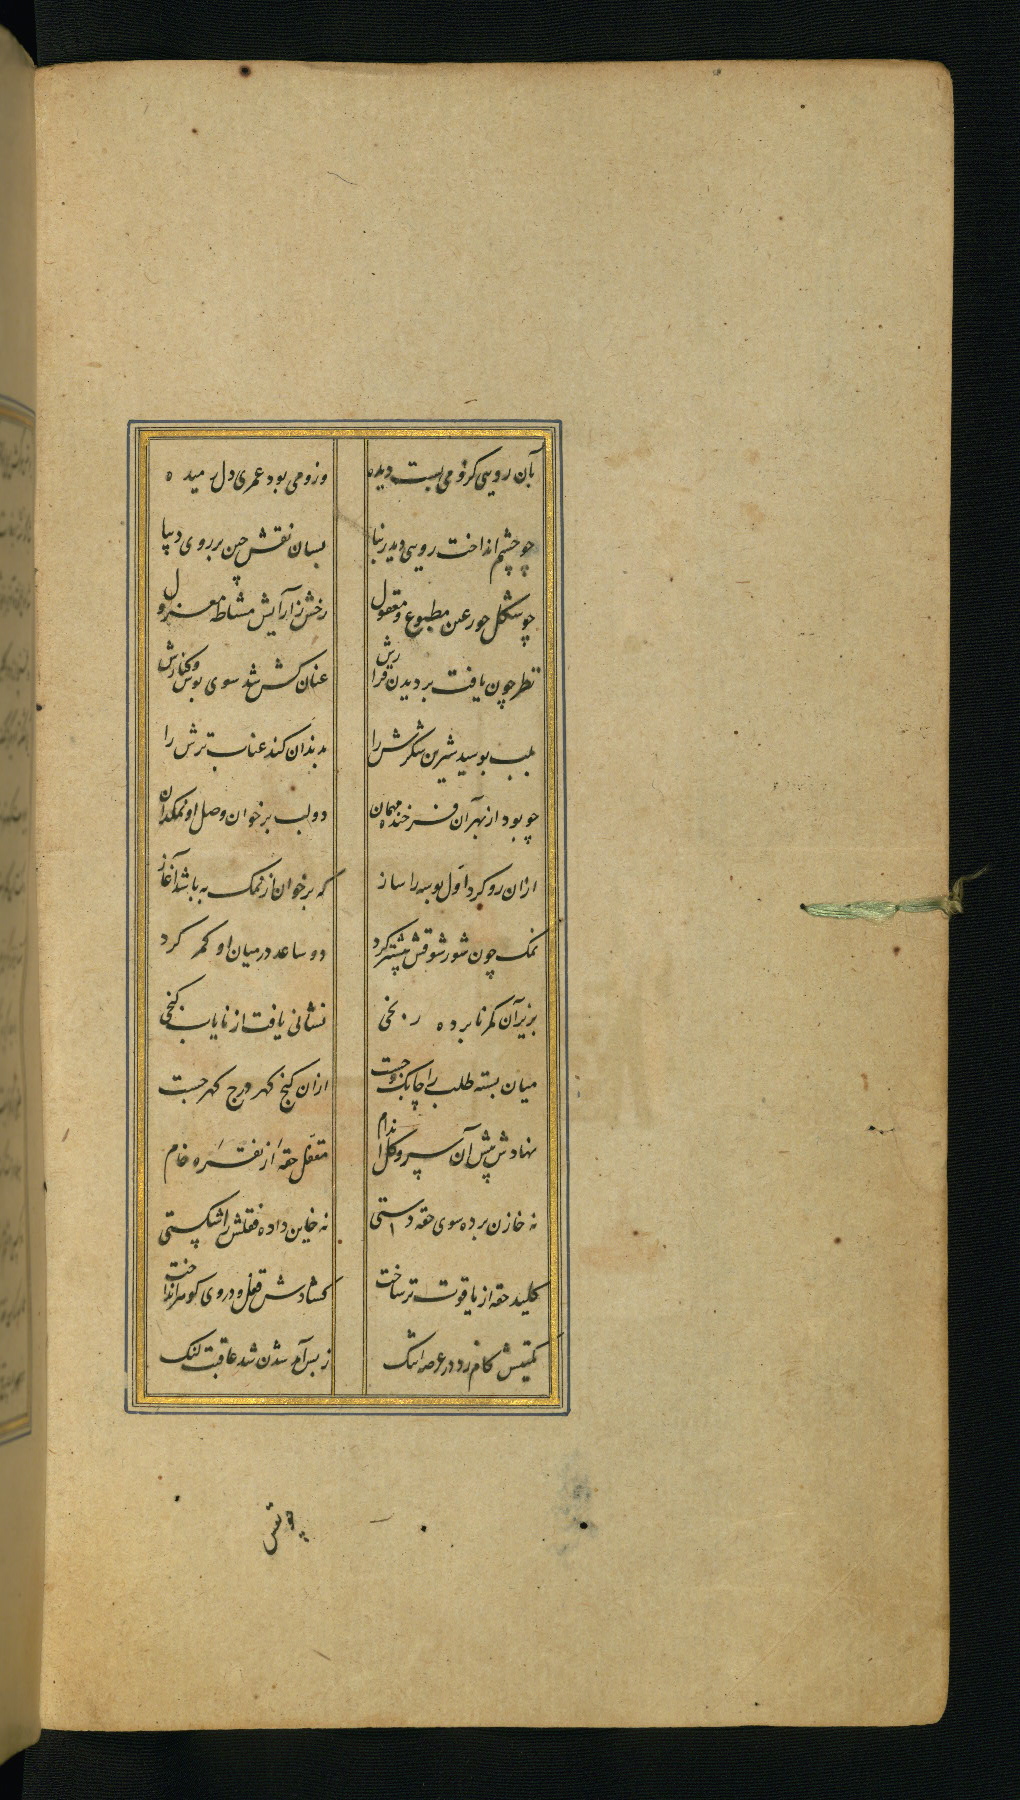 بآن رویی کزو می بست دیده وزو می بود عمری دل رمیده
چو چشم انداخت رویی دید زیبا بسان نقش چین بر روی دیبا
چو شکل حور عین مطبوع و مقبول رخش ز آرایش مشاطه معزول
نظر چون یافت بر دیدن قرارش عنان کش شد سوی بوس و کنارش
بلب بوسید شیرین شکرش را بدندان کند عناب ترش را
چو بود از بهر آن فرخنده مهمان دو لب بر خوان وصل او نمکدان
ازان رو کرد اول بوسه را ساز که بر خوان از نمک به باشد آغاز
نمک چون شور شوقش بیشتر کرد دو ساعد در میان او کمر کرد
بزیر آن کمر نابرده رنجی نشانی یافت از نایاب گنجی
میان بسته طلب را چابک و چست ازان گنج گهر درج گهر جست
نهادش پیش آن سرو گل اندام مقفل حقهٔ از نقره خام
نه خازن برده سوی حقه دستی نه خاین داده قفلش را شکستی
کلید حقه از یاقوت تر ساخت گشادش قفل و در وی گوهر انداخت
کمیتش گام زد در عرصه تنگ ز بس آمد شدن شد عاقبت لنگ
چو نفس